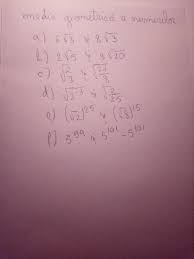 media geometrică a numerelor
a) 6√3 și 8√3
b) 2√5 și 3√20
c) √2/3 și √27/8
d) și
e) (√2)²⁵ și (√8)¹⁵
f) 5⁹⁹ și 5¹⁰¹ - 5¹⁰¹